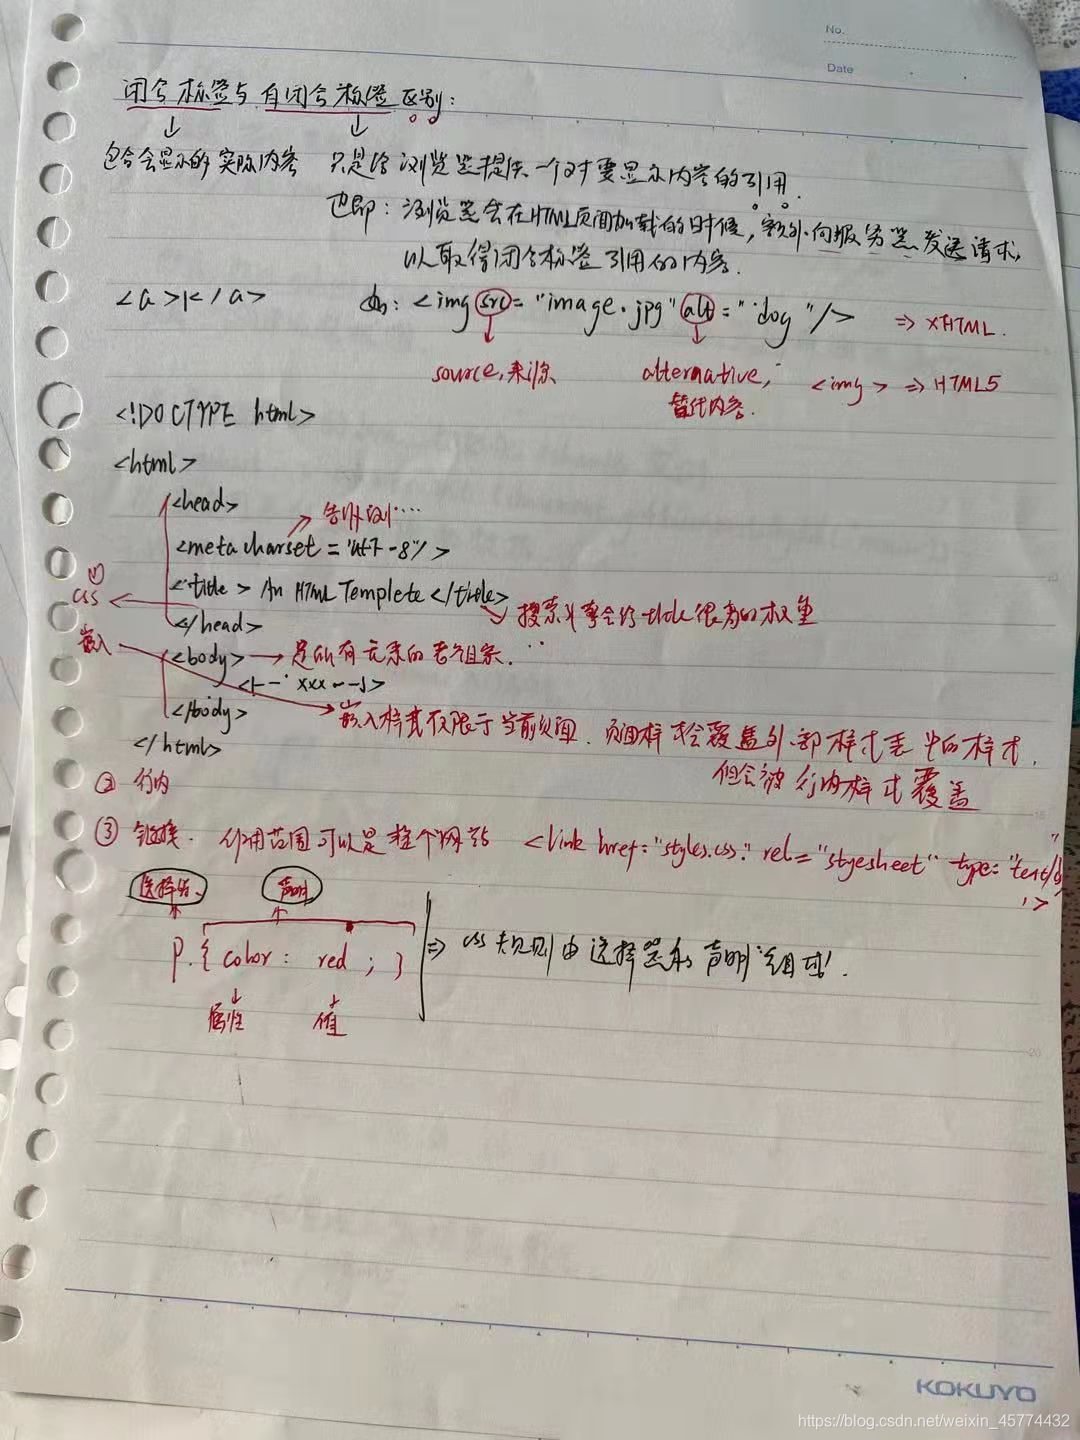 No.
Date
闭合标签与自闭合标签区别:
包含会显示的实际内容 只是给浏览器提供一个对要显示内容的引用.
也即: 浏览器会在HTML页面加载的时候, 额外向服务器发送请求,
以取得闭合标签引用的内容.
<a></a> 如: <img src="image.jpg" alt="dog"/> => XHTML.
source, 来源 alternative, <img> => HTML5
替代内容.
<!DOCTYPE html>
<html>
<head>
告诉浏…
<meta charset="utf-8"/>
① css
<title> An HTML Templete </title>
搜索引擎会给title很高的权重
</head>
嵌入
<body> → 是所有元素的老祖宗.
<!-- xxx -->
</body>
嵌入样式仅限于当前页面. 页面样式会覆盖外部样式表中的样式.
</html>
但会被行内样式覆盖
② 行内
③ 链接. 作用范围可以是整个网站 <link href="styles.css." rel="styesheet" type="text/
/>
选择器. 声明
P.{ color: red ; } => css规则由选择器和声明组成!
属性 值
KOKUYO
https://blog.csdn.net/weixin_45774432